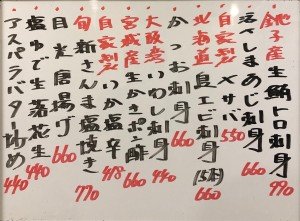 銚子産 生鮪トロ刺身 990
活〆しまあじ刺身 660
自家製 〆サバ 550
北海道 島エビ刺身 (5本) 660
かつお刺身 660
大阪産 いわし刺身 440
宮城産 生かきポン酢 660
自家製 いか塩辛 418
旬 新さんま塩焼き 770
目光唐揚げ 660
塩ゆで生落花生 440
アスパラバタ炒め 440